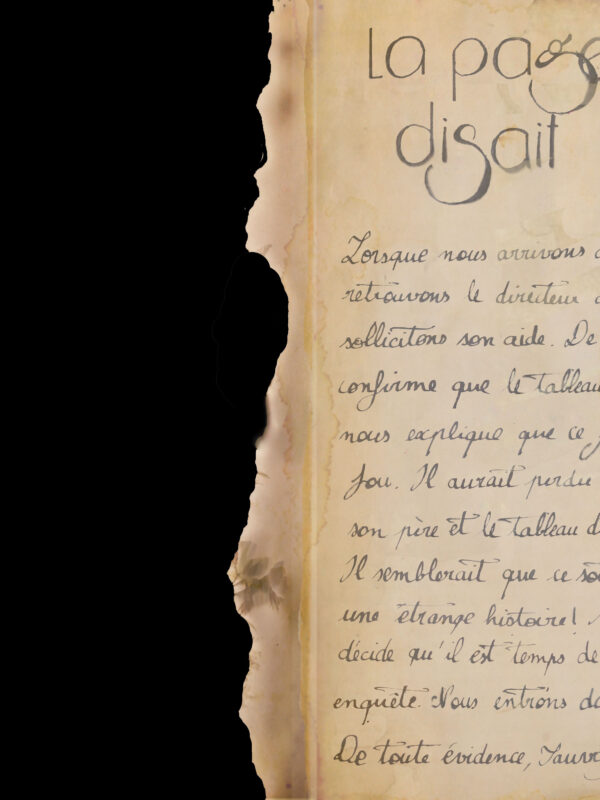 La page
disait
Lorsque nous arrivons
retrouvons le directeur
sollicitons son aide. De
confirme que le tableau
nous explique que ce
fou. Il aurait perdu
son père et le tableau d
Il semblerait que ce so
une étrange histoire!
décide qu'il est temps de
enquête. Nous entrons da
De toute évidence, Sauv